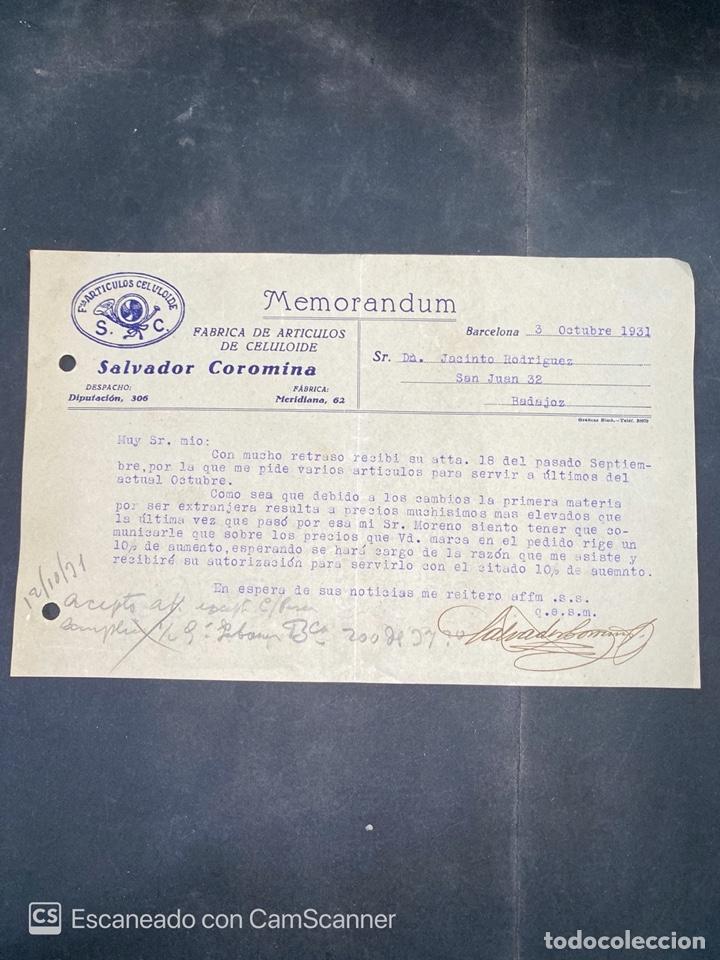 Fca ARTICULOS CELULOIDE
S. C.
Memorandum
FABRICA DE ARTICULOS
DE CELULOIDE
Salvador Coromina
DESPACHO:
Diputación, 306
FÁBRICA:
Meridiana, 62
Barcelona 3 Octubre 1931
Sr. Dn. Jacinto Rodriguez
San Juan 32
Badajoz
Muy Sr. mio:
Con mucho retraso recibi su atta. 18 del pasado Septiem-
bre,por la que me pide varios articulos para servir a últimos del
actual Octubre.
Como sea que debido a los cambios la primera materia
por ser extranjera resulta a precios muchisimos mas elevados que
la última vez que pasó por esa mi Sr. Moreno siento tener que co-
municarle que sobre los precios que Vd. marca en el pedido rige un
10% de aumento,esperando se hará cargo de la razón que me asiste y
recibiré su autorización para servirlo con el citado 10% de auemnto.
En espera de sus noticias me reitero affm .s.s.
q.e.s.m.
12/10/31
Acepto
200 de
Salvador Coromina
CS Escaneado con CamScanner
todocoleccion